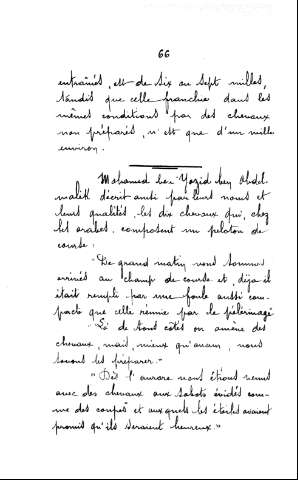 66
entraînés, est de six ou sept milles,
tandis que celle franchie dans les
mêmes conditions par des chevaux
non préparés, n'est que d'un mille
environ.
Mohamed ben Yezid ben Abdel-
malek décrit ainsi par leurs noms et
leurs qualités, les dix chevaux qui, chez
les arabes, composent un peloton de
course:
"De grand matin nous sommes
arrivés au champ de course et, déjà il
était rempli par une foule aussi com-
pacte que celle réunie par le pélerinage
"Là de tous côtés on amène des
chevaux, mais, mieux qu'aucun, nous
savons les préparer."
"Dès l'aurore nous étions venus
avec des chevaux aux sabots évidés com-
me des coupes et auxquels les étoiles avaient
promis qu'ils seraient heureux."